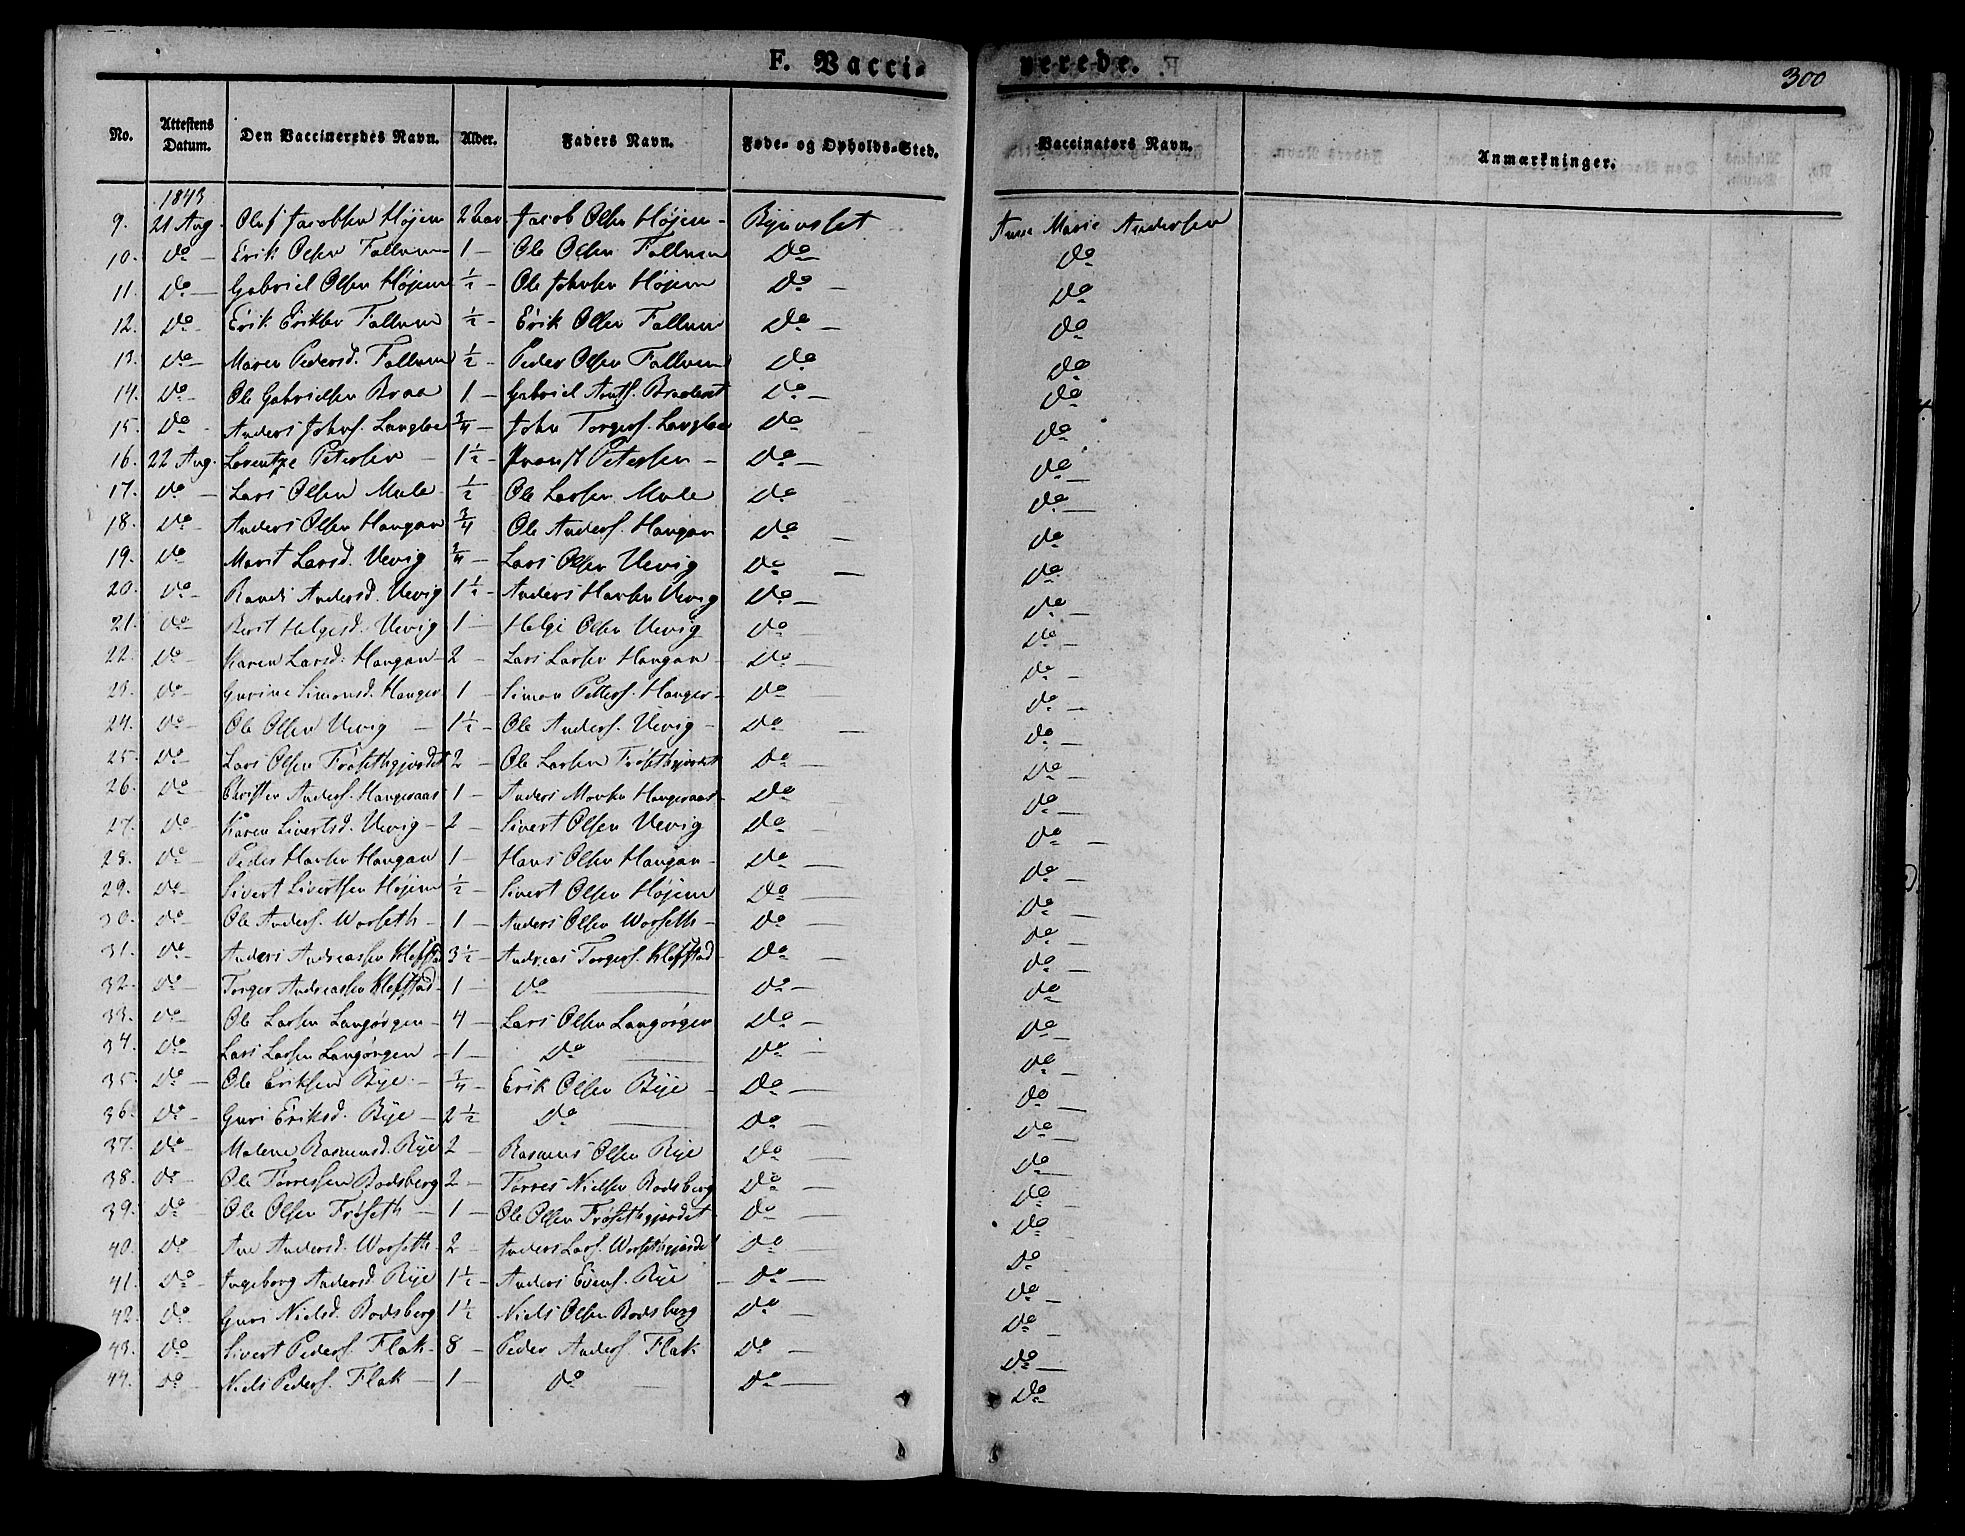 F. Vaccinerede.
300
No. Attestens Datum. Den Vaccineredes Navn. Alder. Faders Navn. Føde- og Opholds-Sted. Vaccinators Navn. Anmærkninger.
1843
9. 21 Aug. Oluf Jacobsen Højem 2 Aar Jacob Olsen Højem - Bynæsset Anne Marie Andersen
10. Do - Erik Olsen Fallum 1 - Ole Olsen Fallum Do - Do
11. Do - Gabriel Olsen Højem ½ - Ole Johnsen Højem Do - Do
12. Do - Erik Eriksen Fallum ½ - Erik Olsen Fallum Do - Do
13. Do - Maren Pedersd. Fallum ½ - Peder Olsen Fallum Do Do
14. Do - Ole Gabrielsen Braa 1 - Gabriel Arntf. Do - Do
15. Do - Anders Johnf. Langloe ¾ - John Torgerf. Langloe Do - Do
16. 22 Aug. Lorentze Petersen - 1½ - Petersen - Do - Do -
17. Do - Lars Olsen Mule ½ - Ole Larsen Mule Do - Do -
18. Do - Anders Olsen Haugan ¾ Ole Andersf. Haugan Do - Do
19. Do Marit Larsd. Uevig ¾ - Lars Olsen Uevig Do - Do
20. Do - Randi Andersd. Uevig 1½ - Anders Hansen Uevig Do - Do -
21. Do Berit Helgesd. Uevig 1 - Helge Olsen Uevig Do - Do -
22. Do - Karen Larsd. Haugan - 2 - Lars Larsen Haugan - Do - Do -
23. Do - Gurine Simonsd. Hanger 1 - Simon Petterf. Hanger - Do - Do -
24. Do - Ole Olsen Uevig - 1½ - Ole Andersf. Uevig - Do - Do -
25. Do - Lars Olsen Frøsethgjerdet 2 - Ole Larsen Frøsethgjerdet Do - Do -
26. Do - Andersf. Hangeraas 1 - Anders Hangeraas - Do - Do -
27. Do - Karen Sivertsd. Uevig - 2 - Sivert Olsen Uevig Do - Do -
28. Do - Peder Hansen Haugan 1 - Hans Olsen Haugan - Do - Do -
29. Do - Sivert Sivertsen Højem ½ - Sivert Olsen Højem Do - Do -
30. Do - Ole Andersf. Worseth - 1 - Anders Olsen Worseth - Do - Do -
31. Do - Anders Andreassen Klefstad 3½ - Andreas Torgersf. Klefstad - Do - Do -
32. Do - Torger Andreassen Klefstad - 1 - Do - Do - Do
33. Do - Ole Larsen Langørgen - 4 - Lars Olsen Langørgen Do - Do -
34. Do - Lars Larsen Langørgen - 1 - Do - Do - Do -
35. Do - Ole Eriksen Bye - ¾ - Erik Olsen Bye - Do - Do -
36. Do - Guri Eriksd. Bye - 2½ Do - Do - Do -
37. Do - Malene Rasmusd. Rye 2 - Rasmus Olsen Rye Do - Do -
38. Do - Ole Torressen Bodsberg 2 - Torres Nielsen Bodsberg Do - Do -
39. Do - Ole Olsen Frøseth - 1 - Ole Olsen Frøsethgjerdet Do - Do -
40. Do - Ane Andersd. Worseth - 2 - Anders Larsf. Worsethgjerdet Do - Do
41. Do - Ingeborg Andersd. Rye 1½ - Anders Evensf. Rye - Do - Do -
42. Do - Guri Nielsd. Bodsberg 1½ Niels Olsen Bodsberg Do - Do -
43. Do - Sivert Pedersf. Flak - 8 - Peder Andersf. Flak Do - Do -
44. Do - Niels Pedersf. Flak - 1 - Do - Do - Do